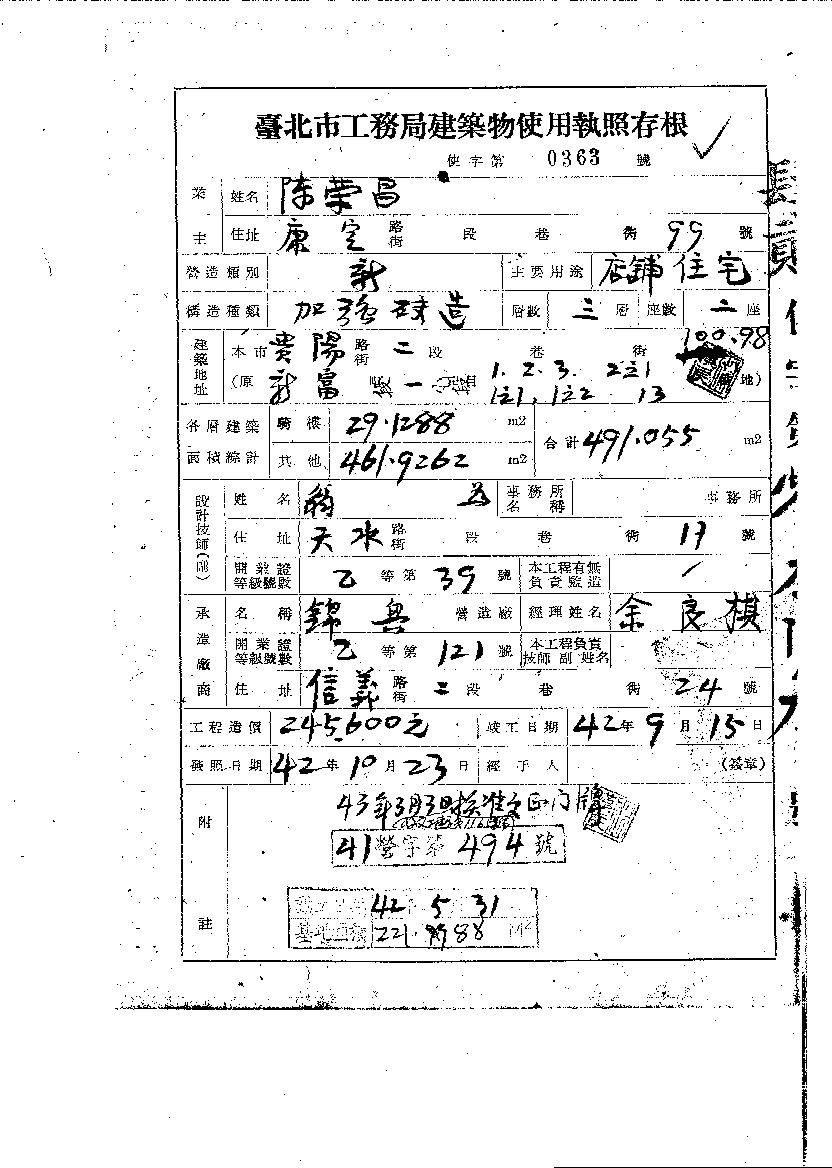 臺北市工務局建築物使用執照存根
使字第 0363 號
業主 姓名 陈榮昌
住址 康定 路街 段 巷 衖 99 號
營造種別 新 主要用途 店鋪住宅
構造種類 加強磚造 層數 三層 座數 二座
100.98
建築地址 本市 貴陽 路街 二段 巷 衖
(原 新富 段一 1. 2. 3. 2之1 地)
1之1, 1之2 13
各層建築面積總計 騎樓 29.1288 m2 合計 491.055 m2
其他 461.9262 m2
設計技師(師) 姓名 翁 事務所名稱 事務所
住址 天水 路街 段 巷 衖 17 號
開業證等級號數 乙等第 39 號 本工程有無負責監造
承造廠商 名稱 錦興 營造廠 經理姓名 余良棋
開業證等級號數 乙等第 121 號 本工程負責技師副姓名
住址 信義 路街 二段 巷 衖 24 號
工程造價 245,600元 竣工日期 42年9月15日
發照日期 42年10月23日 經手人 (簽章)
附註 43年3月3日核准更正门牌
41營字第 494 號
42 5 31
基地面積 M2